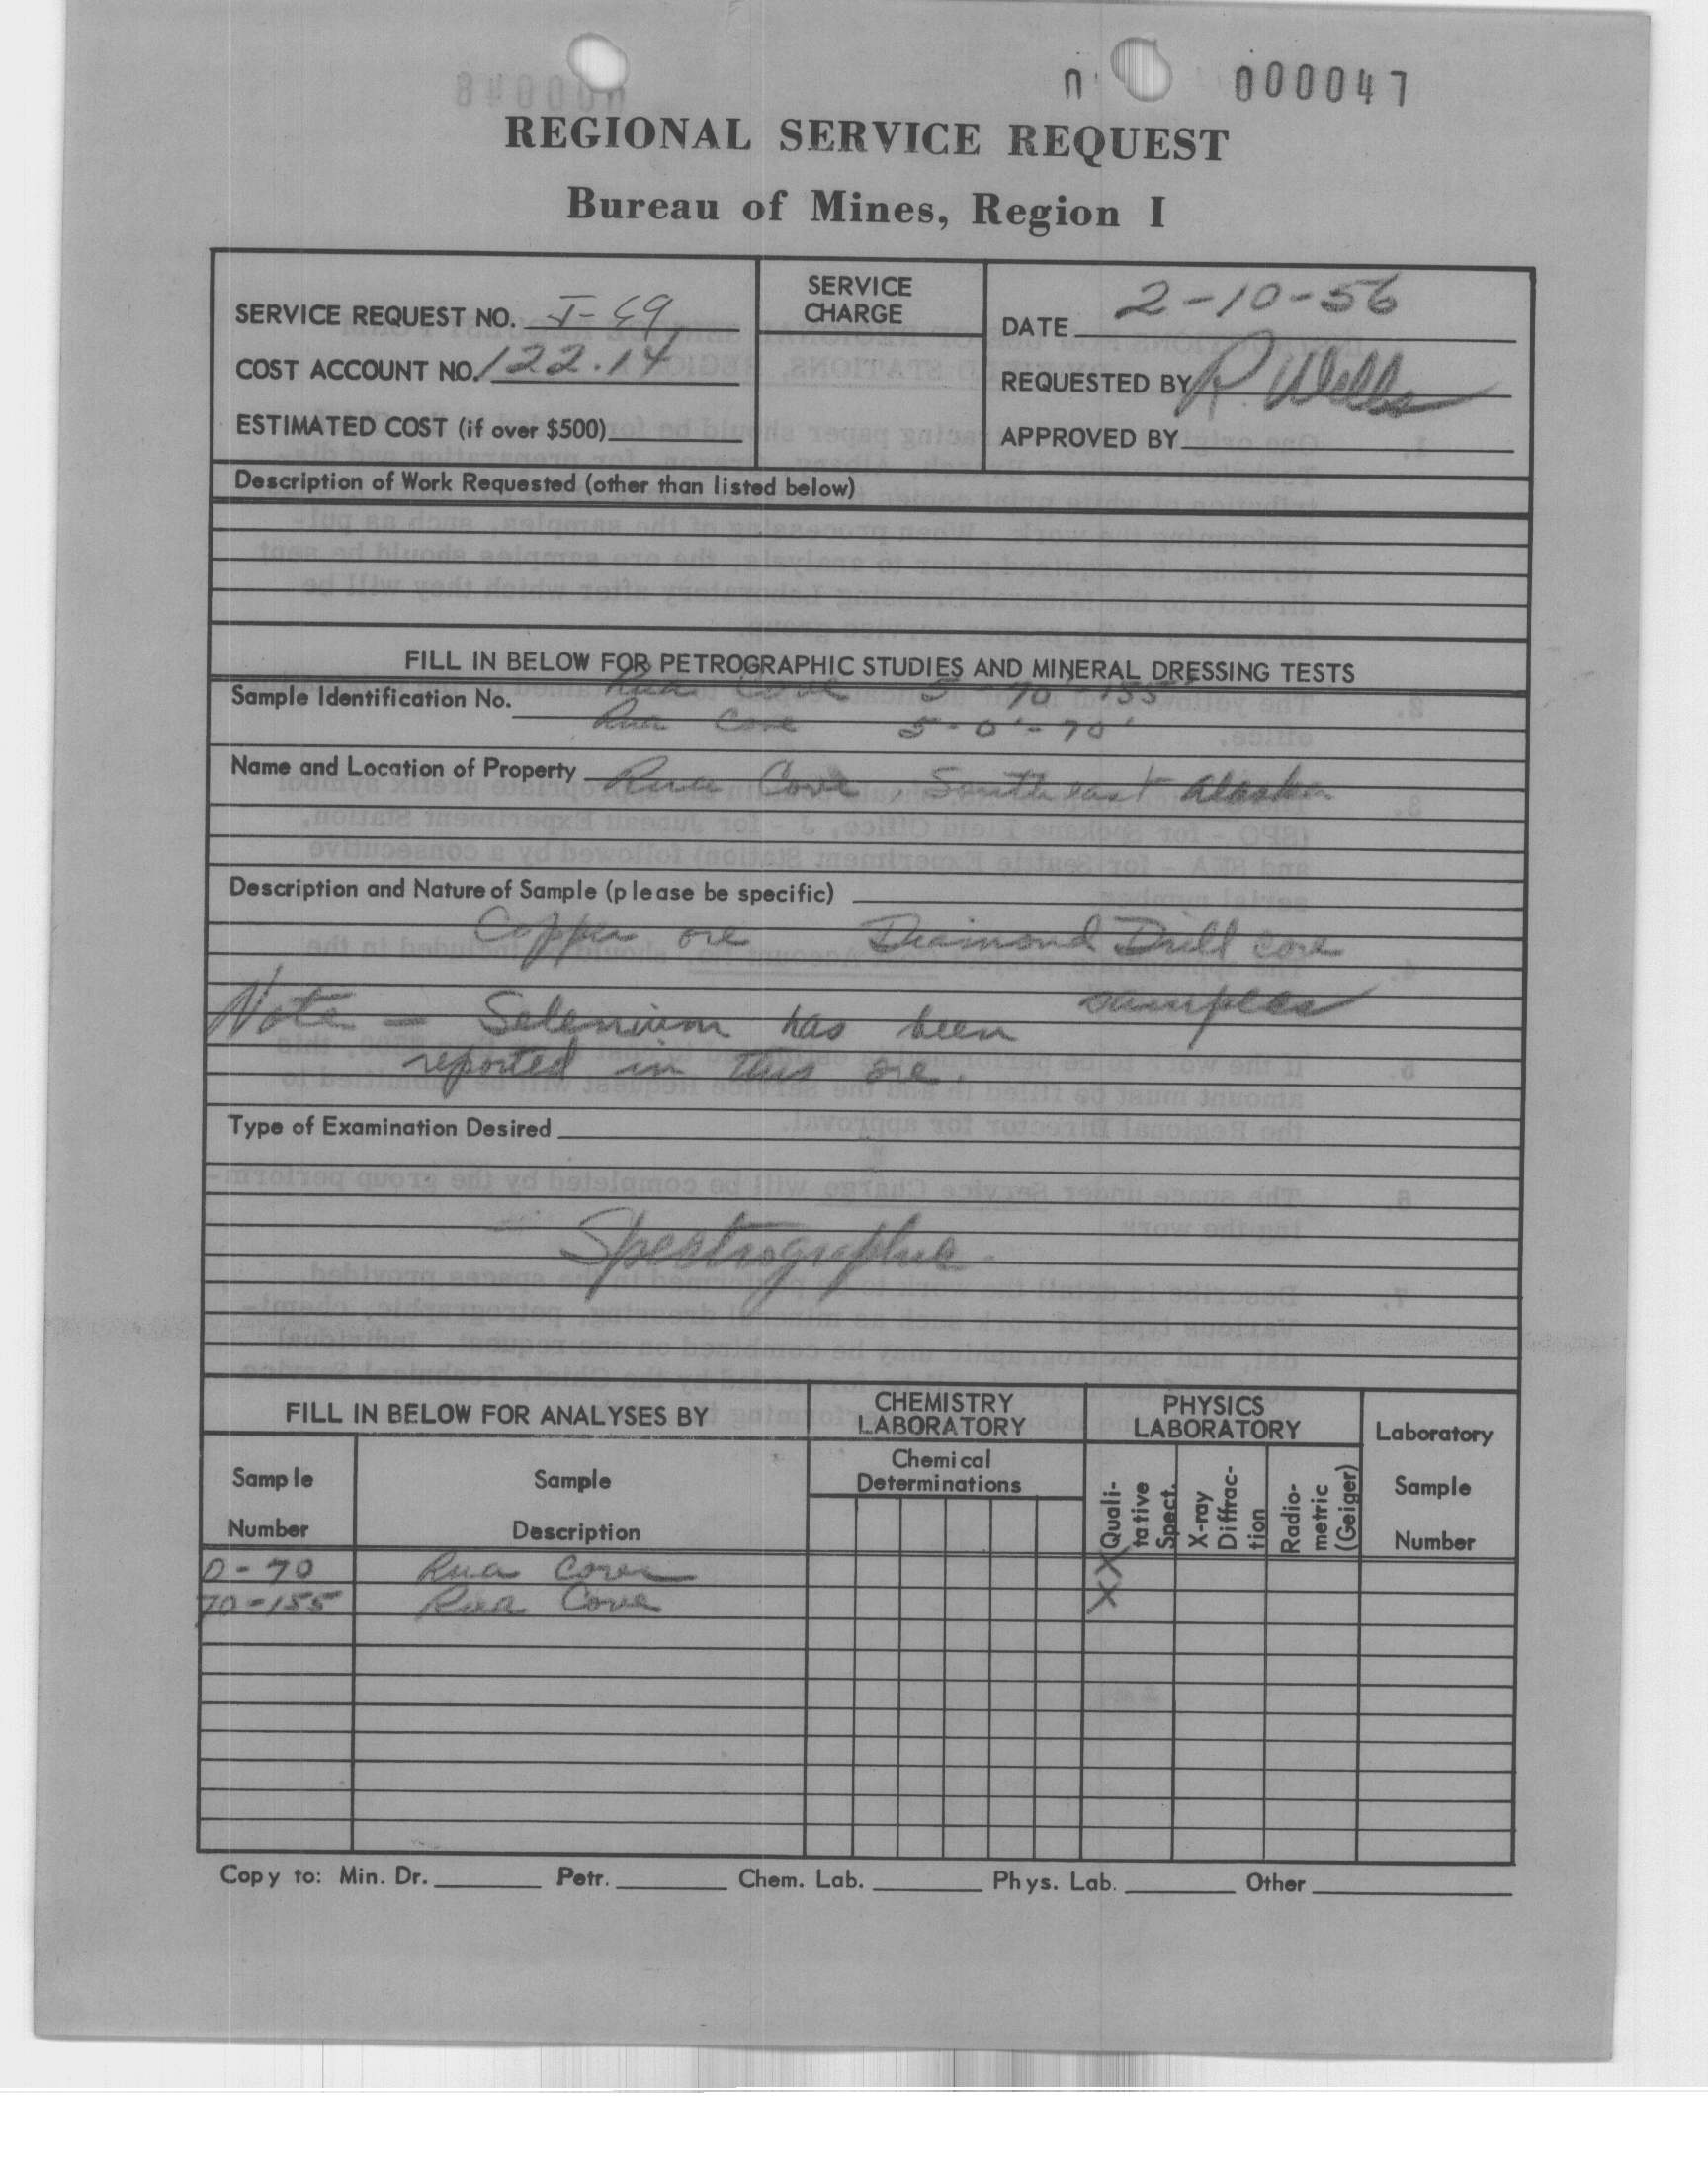 000047
REGIONAL SERVICE REQUEST
Bureau of Mines, Region I
SERVICE REQUEST NO.
COST ACCOUNT NO. 122.14
ESTIMATED COST (if over $500)
SERVICE
CHARGE
DATE 2-10-56
REQUESTED BY R. Wells
APPROVED BY
Description of Work Requested (other than listed below)
FILL IN BELOW FOR PETROGRAPHIC STUDIES AND MINERAL DRESSING TESTS
Sample Identification No. Rua Cove 5 70 155'
Rua Cove 5-0'-70'
Name and Location of Property Rua Cove, Southeast Alaska
Description and Nature of Sample (please be specific)
Copper ore Diamond Drill core
samples
Note - Selenium has been
reported in this ore.
Type of Examination Desired
Spectrographic
FILL IN BELOW FOR ANALYSES BY
CHEMISTRY
LABORATORY
PHYSICS
LABORATORY
Laboratory
Sample
Number
Sample
Number
Sample
Description
Chemical
Determinations
Quali-
tative
Spect.
X-ray
Diffrac-
tion
Radio-
metric
(Geiger)
0-70 Rua Cove X
70-155 Rua Cove X
Copy to: Min. Dr. Petr. Chem. Lab. Phys. Lab. Other